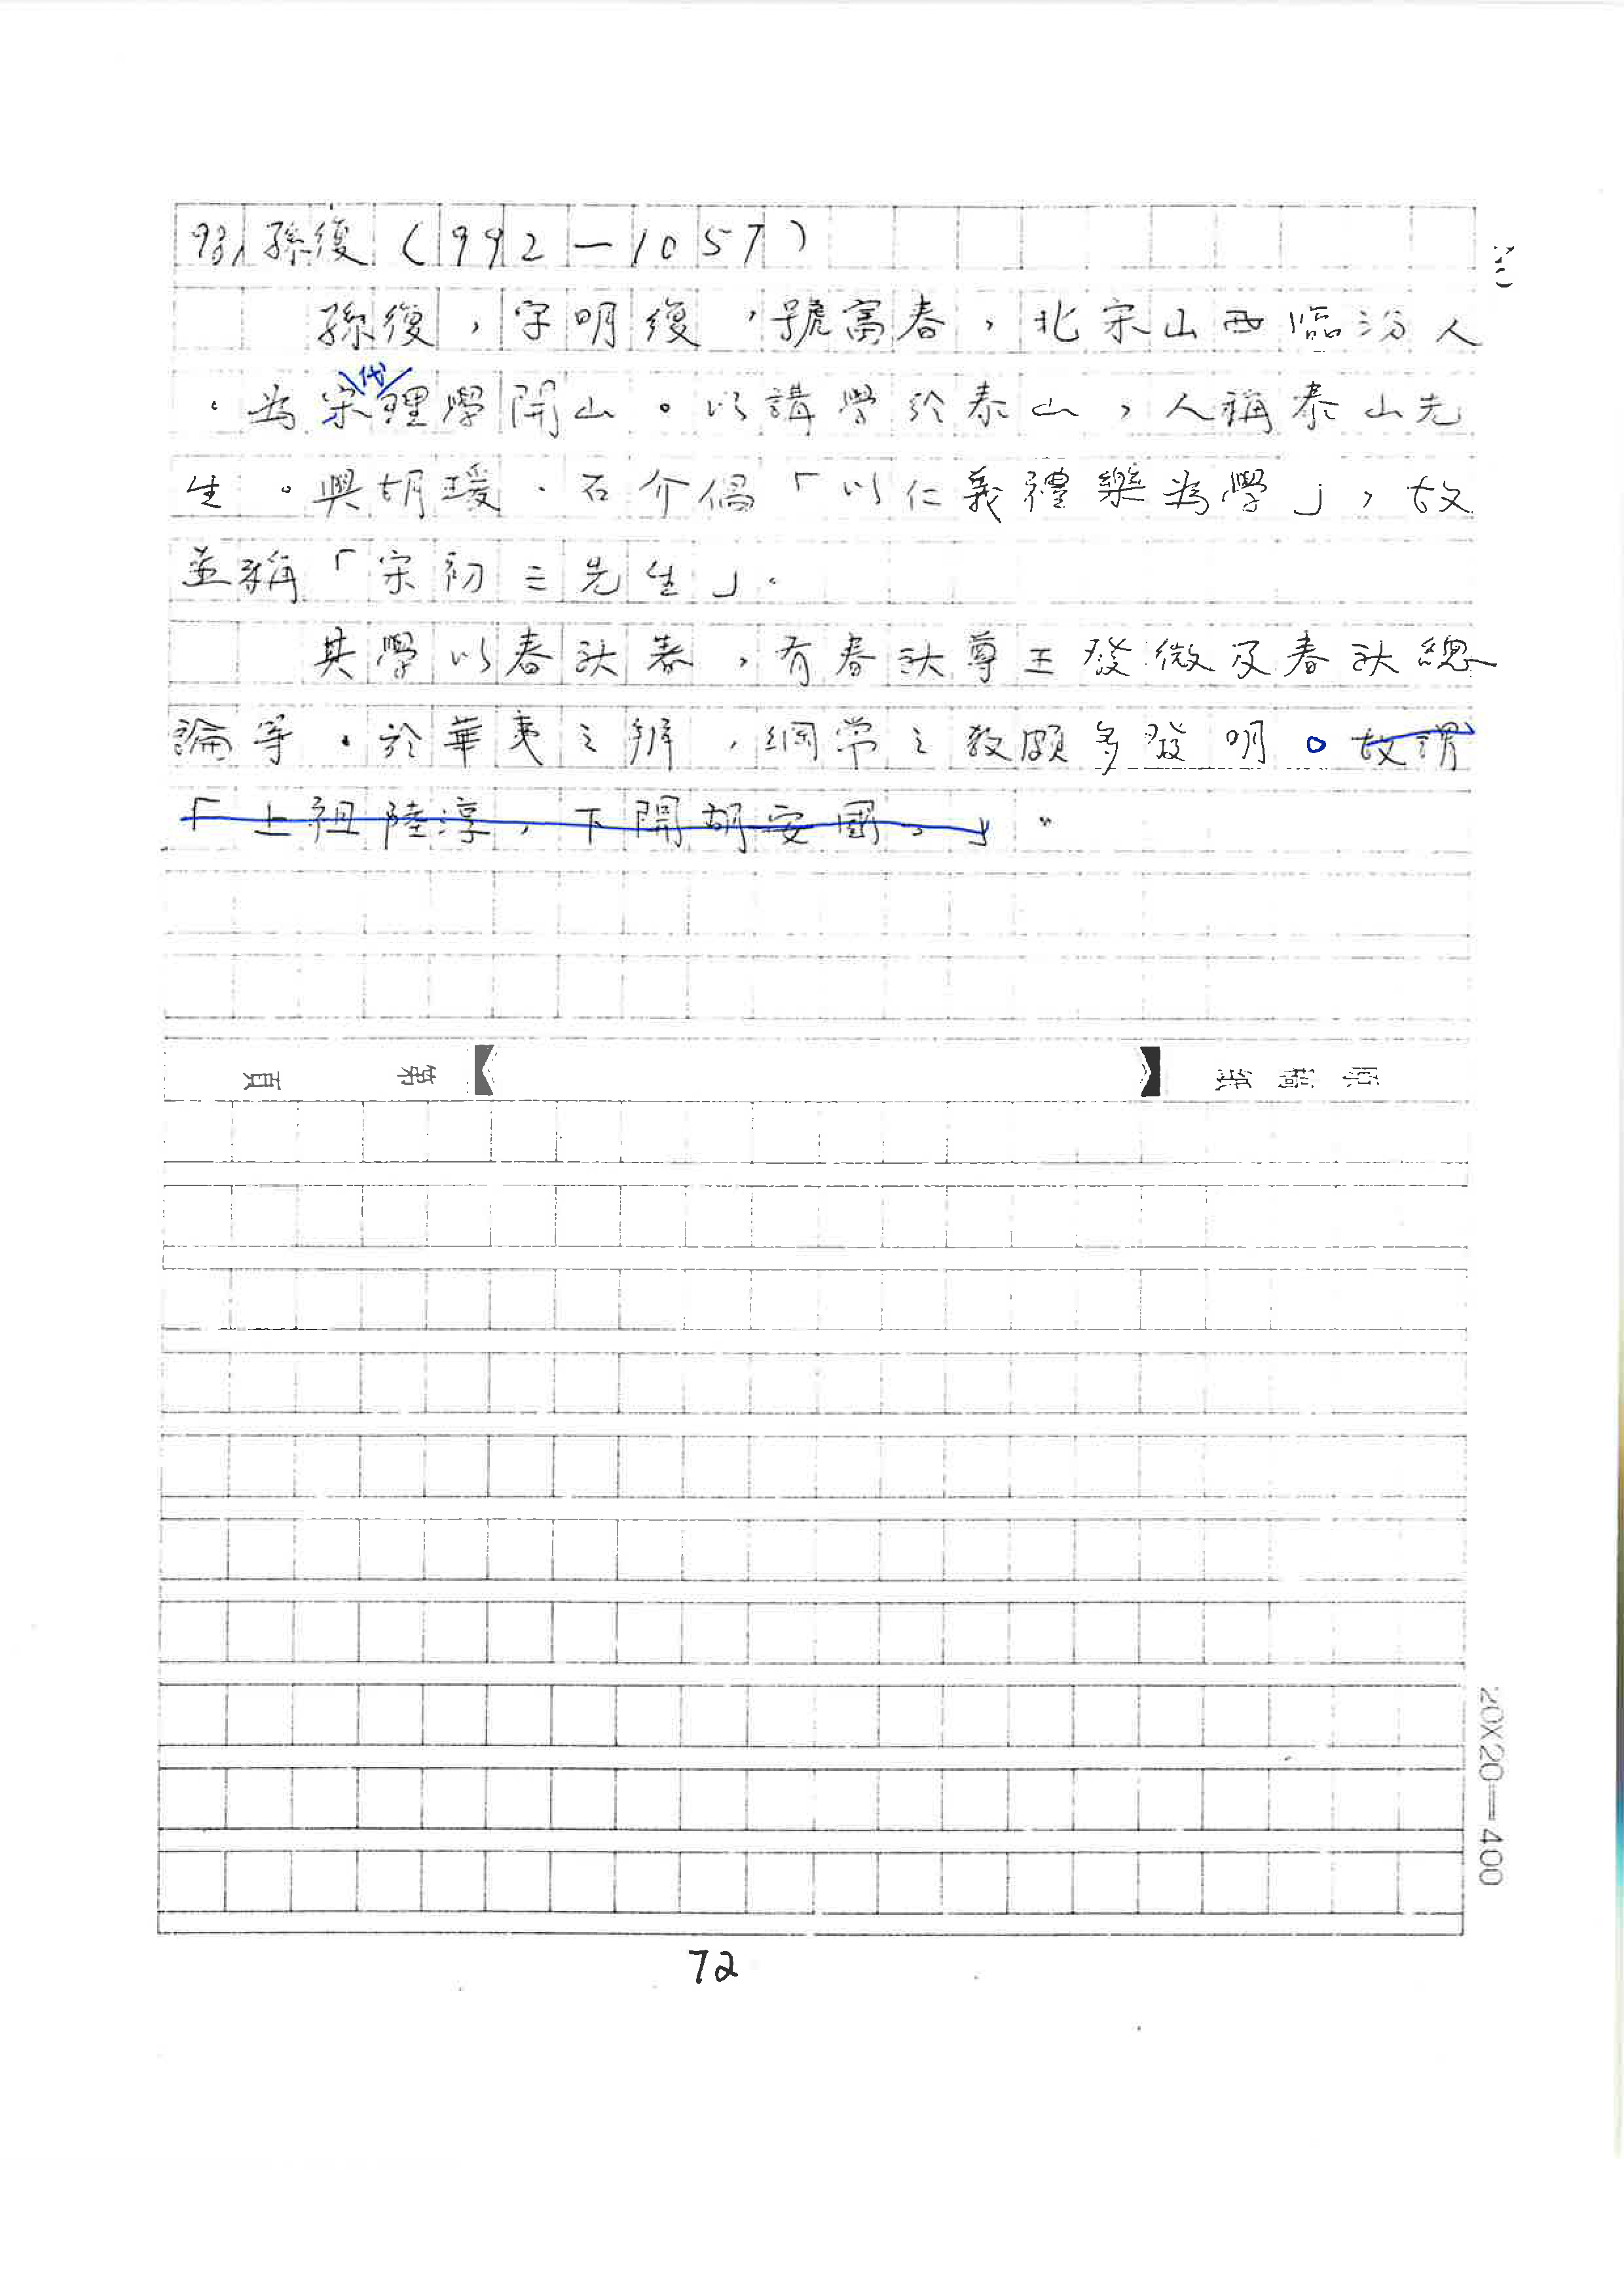 93、孫復（992—1057）
孫復，字明復，號富春，北宋山西臨汾人
。為宋代理學開山。以講學於泰山，人稱泰山先
生。與胡瑗、石介倡「以仁義禮樂為學」，故
並稱「宋初三先生」。
其學以春秋表，有春秋尊王發微及春秋總
論等。於華夷之辨，綱常之教頗多發明。故謂
「上祖陸淳，下開胡安國。」。
第 頁
原稿紙
20X20=400
72